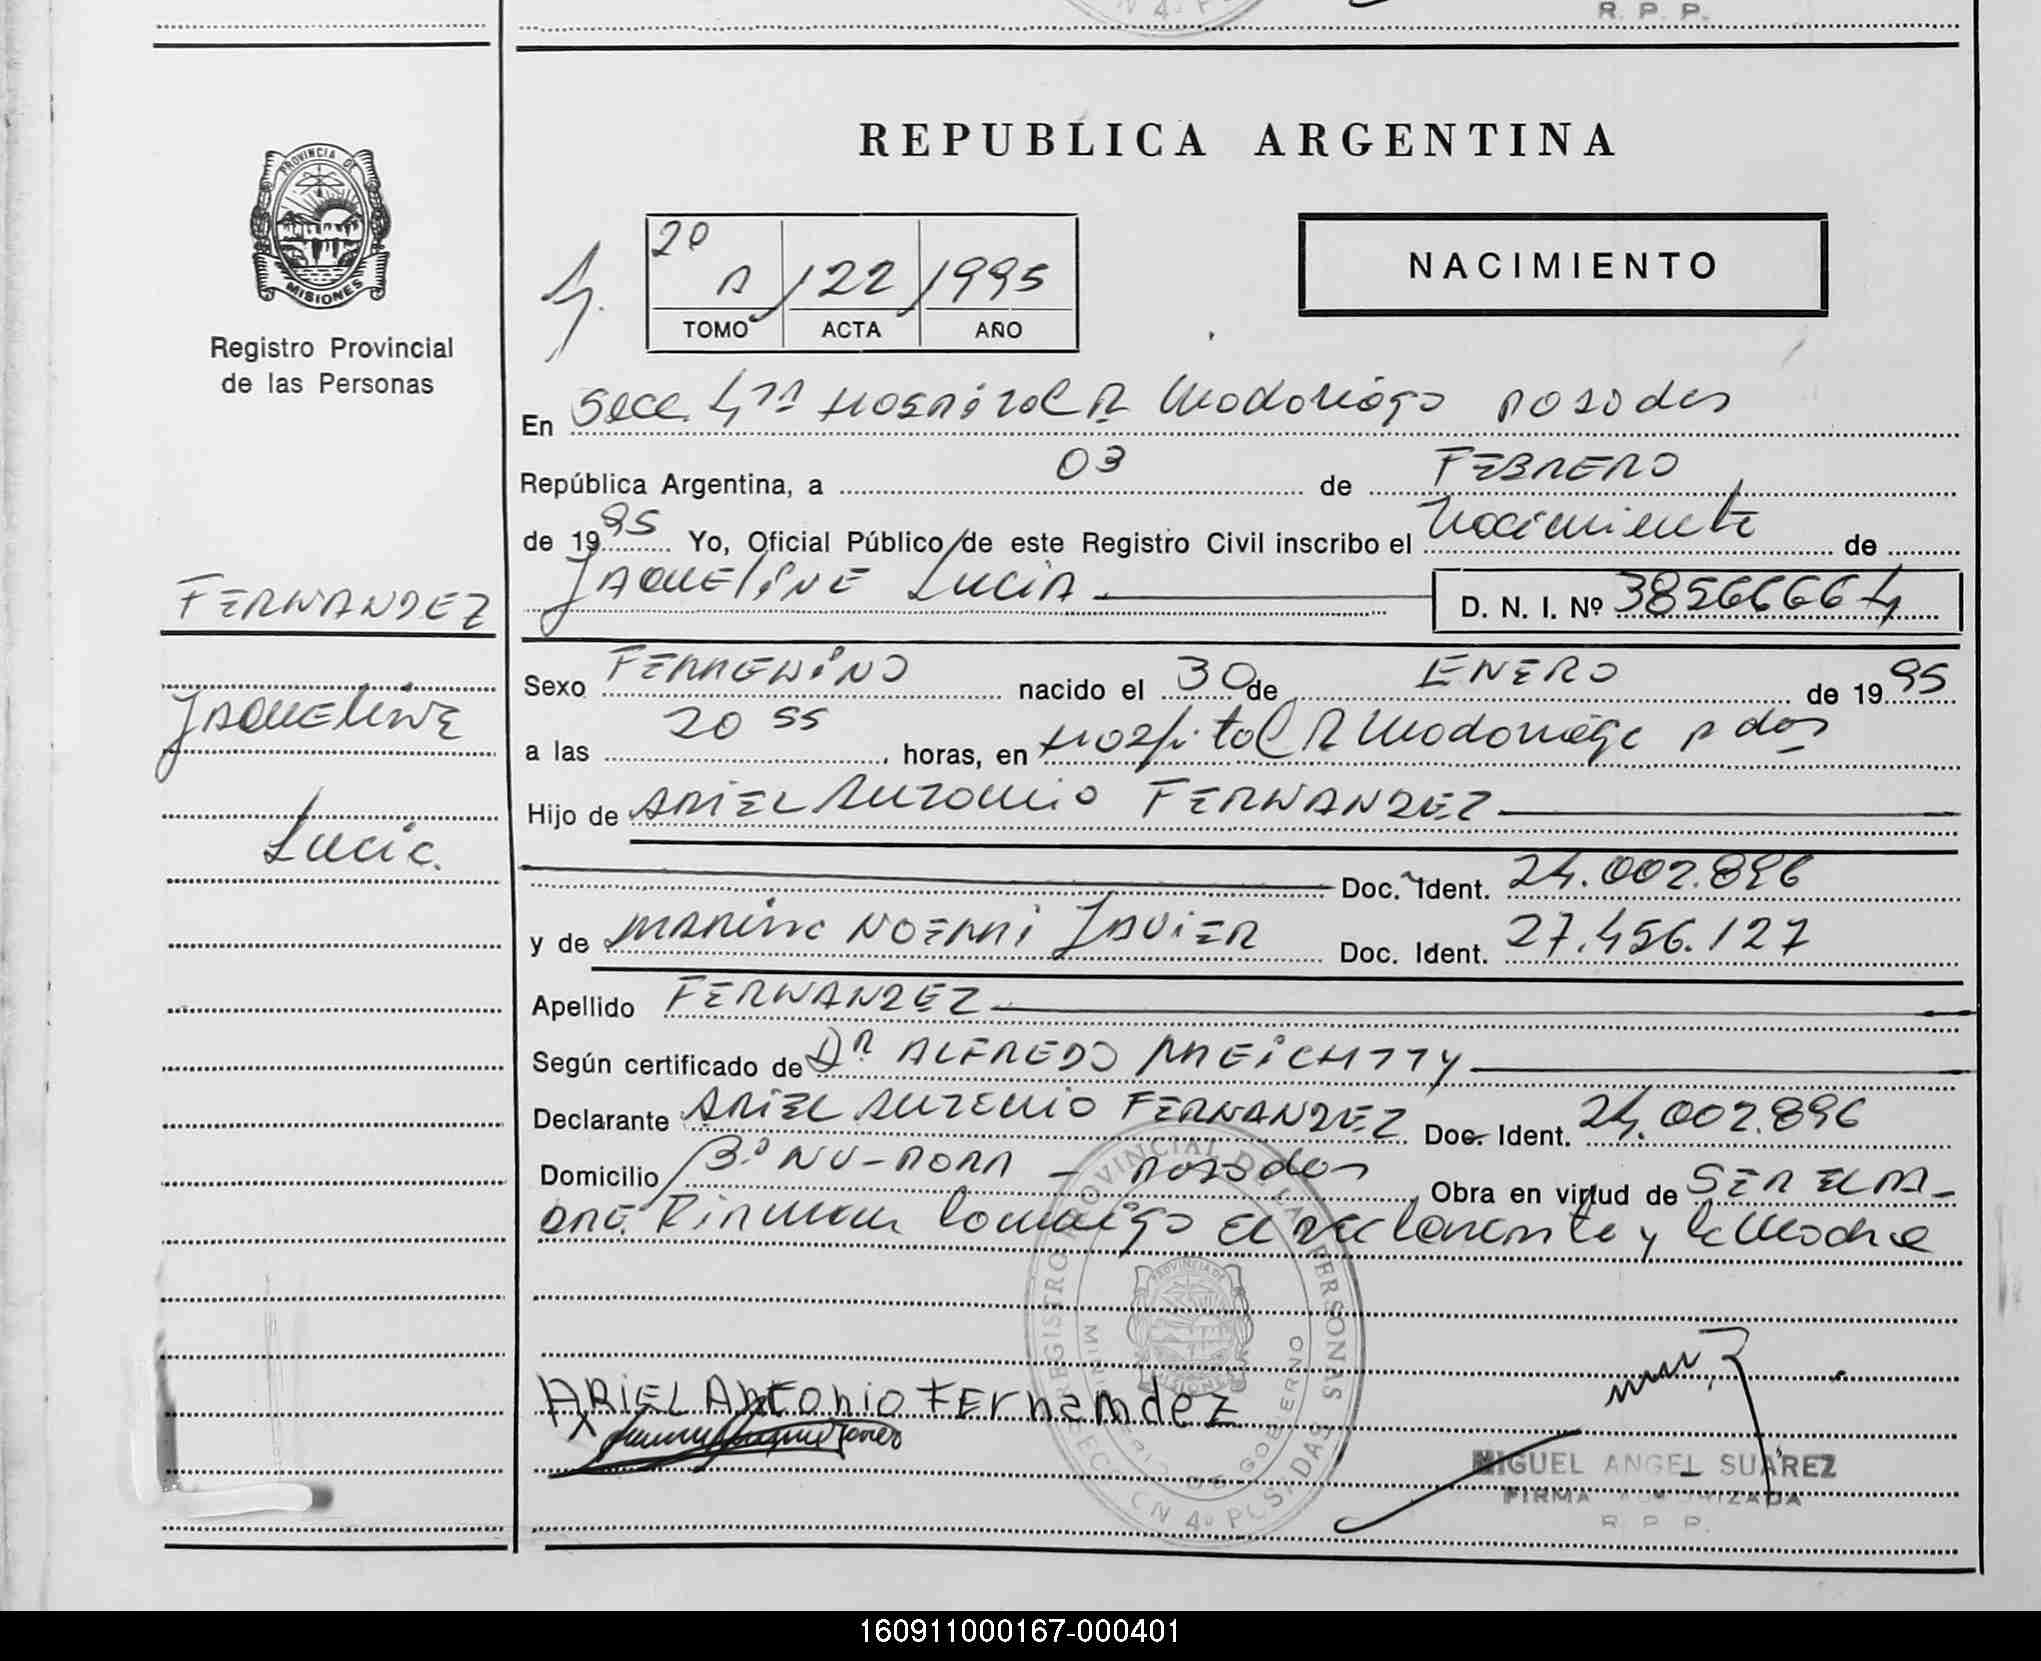 R. P. P.
PROVINCIA DE
MISIONES
Registro Provincial
de las Personas
FERNANDEZ
Jaqueline
Lucia
REPUBLICA ARGENTINA
2º
122 1995
TOMO ACTA AÑO
NACIMIENTO
En Secc. 4ta Hospital R Madariaga Posadas
República Argentina, a 03 de FEBRERO
de 1995 Yo, Oficial Público de este Registro Civil inscribo el Nacimiento de
JAQUELINE LUCIA D. N. I. Nº 38566664
Sexo FEMENINO nacido el 30 de ENERO de 1995
a las 20 55 horas, en Hospital R Madariaga pdas
Hijo de ARIEL Antonio FERNANDEZ
Doc. Ident. 24.002.896
y de MARINA NOEMI JAVIER Doc. Ident. 27.456.127
Apellido FERNANDEZ
Según certificado de Dr ALFREDO
Declarante ARIEL Antonio FERNANDEZ Doc. Ident. 24.002.896
Domicilio Bº Posadas Obra en virtud de SER EL PA-
DRE. Firman conmigo El declarante y la Madre
REGISTRO PROVINCIAL DE LAS PERSONAS
MINISTERIO DE GOBIERNO
SECCION 4ª POSADAS
PROVINCIA DE
MISIONES
ARIEL Antonio FErnandez
MIGUEL ANGEL SUAREZ
FIRMA AUTORIZADA
R. P. P.
160911000167-000401